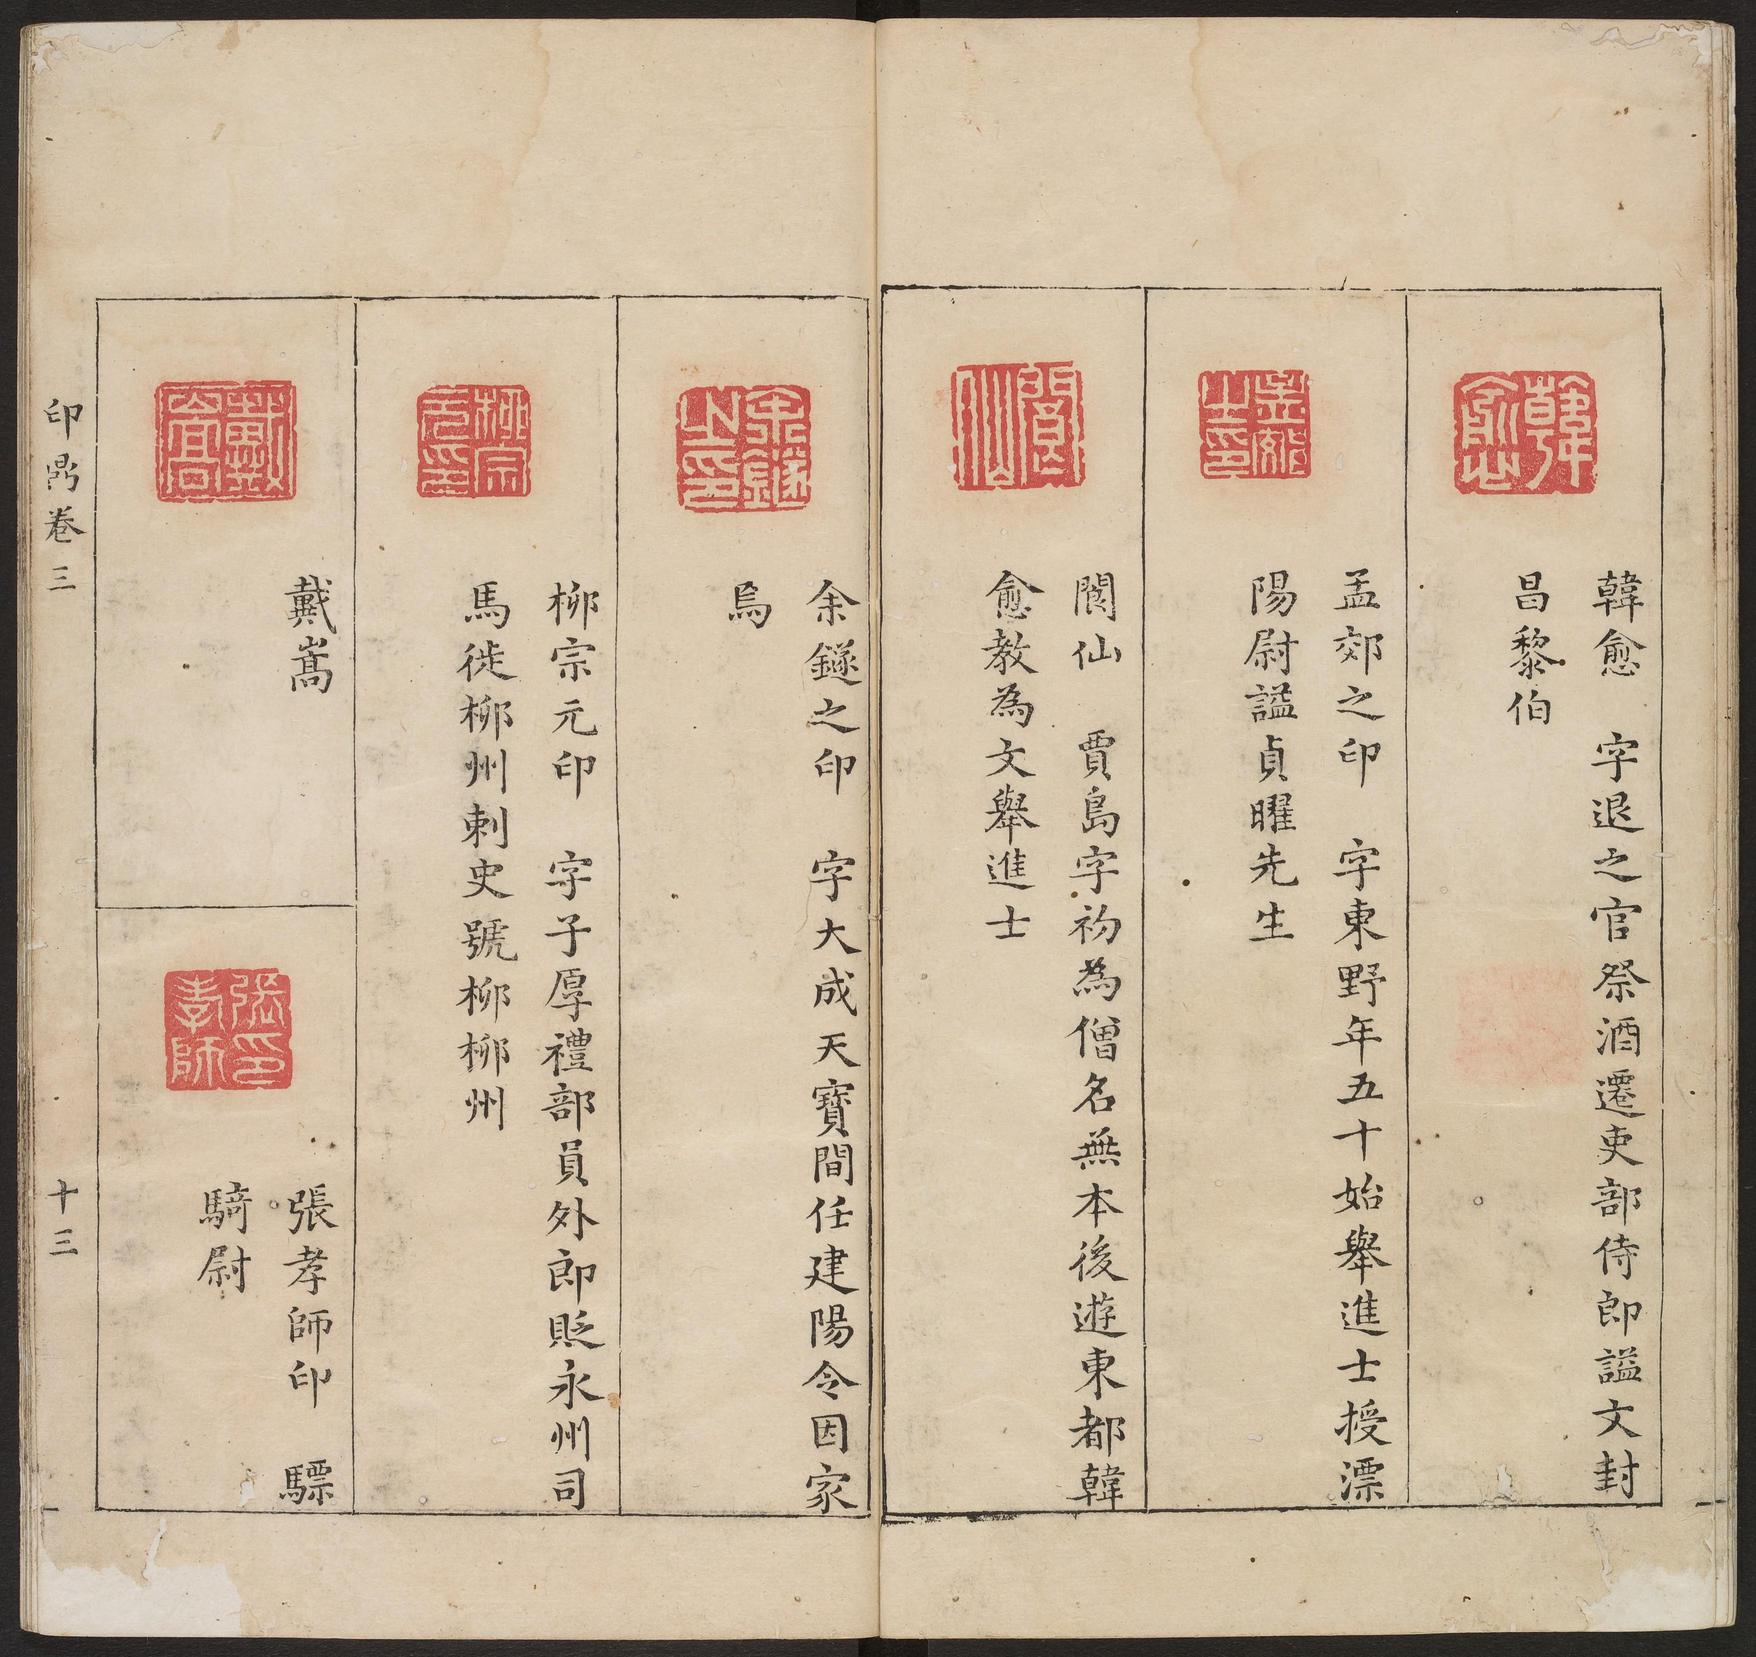 韓愈
韓愈　字退之官祭酒遷吏部侍郎謚文封
昌黎伯
孟郊之印
孟郊之印　字東野年五十始舉進士授漂
陽尉謚貞曜先生
閬仙
閬仙　賈島字初為僧名無本後遊東都韓
愈教為文舉進士
余鐩之印
余鐩之印　字大成天寶間任建陽令因家
焉
柳宗元印
柳宗元印　字子厚禮部員外郎貶永州司
馬徙柳州刺史號柳柳州
戴嵩
戴嵩
張孝師印
張孝師印　驃
騎尉
印鼎卷三
十三